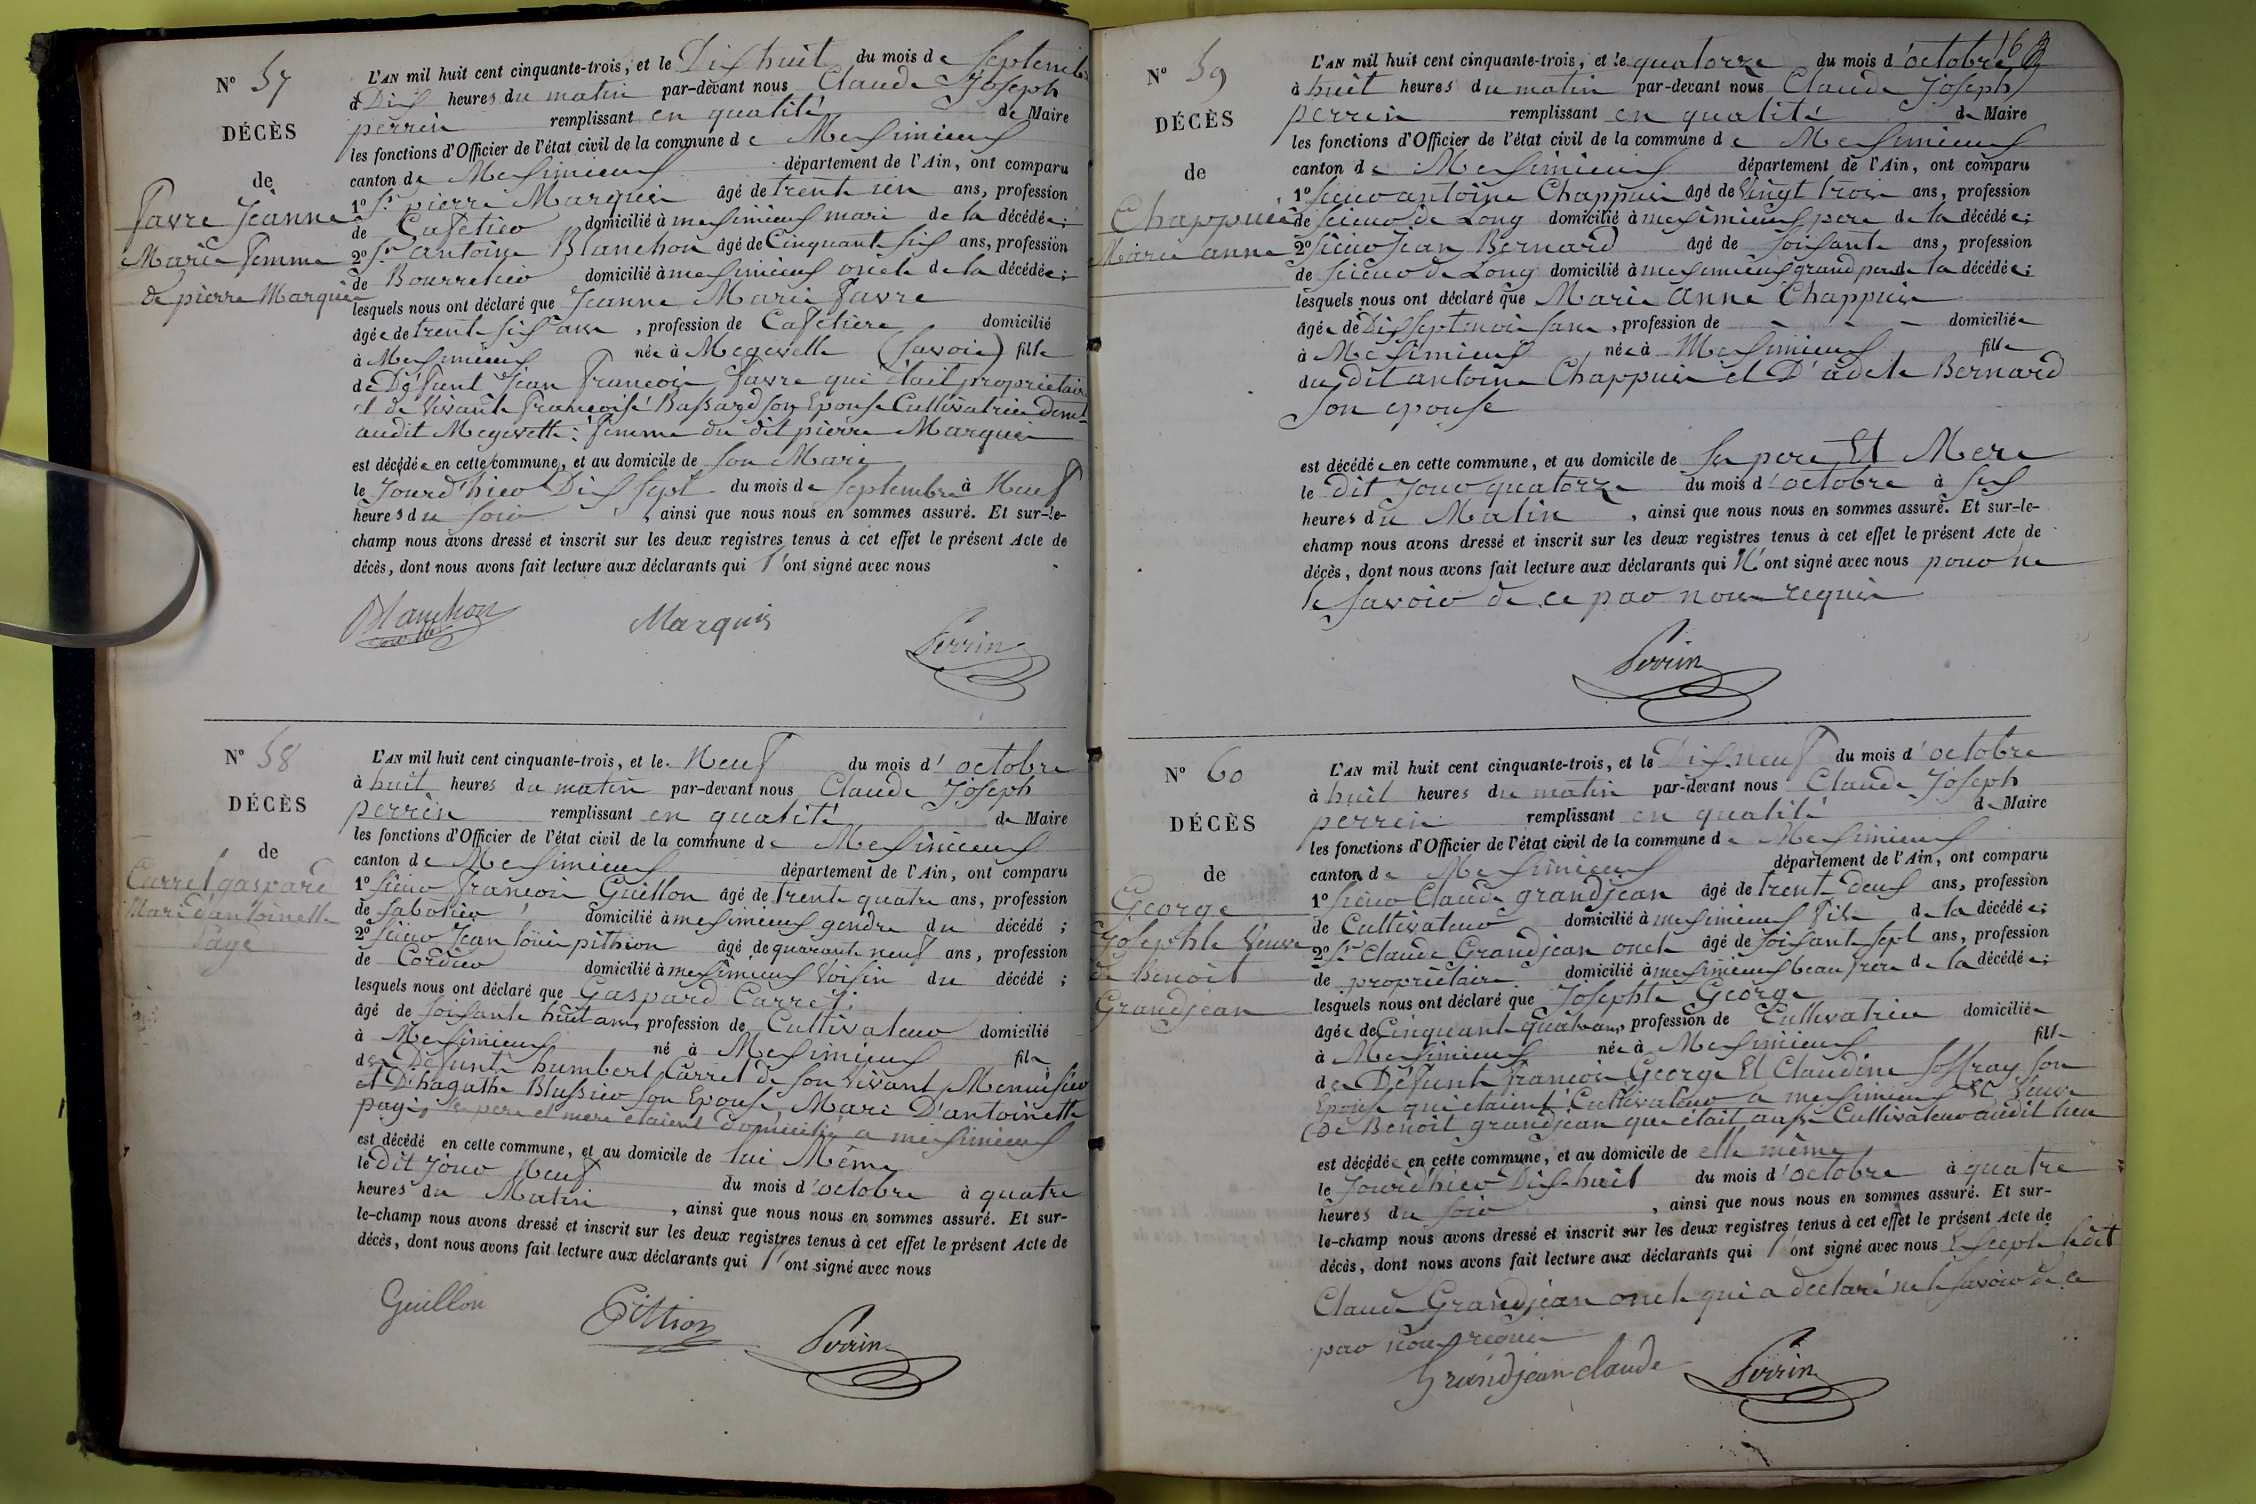 N° 57
DÉCÈS
de
Favre Jeanne
Marie femme
de pierre Marquis
L'AN mil huit cent cinquante-trois, et le Dix huit du mois de Septembre
à Dix heures du matin par-devant nous Claude Joseph
perrin remplissant en qualité de Maire
les fonctions d'Officier de l'état civil de la commune de Meximieux
canton de Meximieux département de l'Ain, ont comparu
1° Sr pierre Marquis âgé de trente six ans, profession
de Cafetier domicilié à meximieux mari de la décédée;
2° Sr antoine Blanchon âgé de Cinquante six ans, profession
de Bourrelier domicilié à meximieux oncle de la décédée;
lesquels nous ont déclaré que Jeanne Marie Favre
âgée de trente six ans, profession de Cafetière domicilié
à Meximieux née à Megevette (Savoie) fille
de Défunt Jean François Favre qui était propriétaire
et de vivante Françoise Bassard son Epouse Cultivatrice demt
audit Megevette: femme du dit pierre Marquis
est décédée en cette commune, et au domicile de son Mari
le Jourd'hier Dix sept du mois de Septembre à Neuf
heures du soir, ainsi que nous nous en sommes assuré. Et sur-le-
champ nous avons dressé et inscrit sur les deux registres tenus à cet effet le présent Acte de
décès, dont nous avons fait lecture aux déclarants qui l'ont signé avec nous
Blanchon Marquis Perrin
N° 58
DÉCÈS
de
Carrel gaspard
Mari d'antoinette
Page
L'AN mil huit cent cinquante-trois, et le Neuf du mois d'octobre
à huit heures du matin par-devant nous Claude Joseph
perrin remplissant en qualité de Maire
les fonctions d'Officier de l'état civil de la commune de Meximieux
canton de Meximieux département de l'Ain, ont comparu
1° Sieur François Guillon âgé de trente quatre ans, profession
de Sabotier domicilié à meximieux gendre du décédé;
2° Sieur Jean louis pithion âgé de quarante neuf ans, profession
de Cordier domicilié à meximieux Voisin du décédé;
lesquels nous ont déclaré que Gaspard Carrel
âgé de soixante huit ans, profession de Cultivateur domicilié
à Meximieux né à Meximieux fils
de Défunts humbert Carrel de son vivant Menuisier
et D'hagathe Blussier son Epouse, Mari D'antoinette
page, Ses pere et mere étaient domiciliés a meximieux
est décédé en cette commune, et au domicile de lui Même
le dit jour Neuf du mois d'octobre à quatre
heures du Matin, ainsi que nous nous en sommes assuré. Et sur-
le-champ nous avons dressé et inscrit sur les deux registres tenus à cet effet le présent Acte de
décès, dont nous avons fait lecture aux déclarants qui l'ont signé avec nous
Guillon Pithion Perrin
16
N° 59
DÉCÈS
de
Chappuis
Marie anne
L'AN mil huit cent cinquante-trois, et le quatorze du mois d'octobre
à huit heures du matin par-devant nous Claude Joseph
perrin remplissant en qualité de Maire
les fonctions d'Officier de l'état civil de la commune de Meximieux
canton de Meximieux département de l'Ain, ont comparu
1° Sieur antoine Chappuis âgé de Vingt trois ans, profession
de scieur de Long domicilié à meximieux pere de la décédée;
2° Sieur Jean Bernard âgé de soixante ans, profession
de scieur de Long domicilié à meximieux grand pere de la décédée;
lesquels nous ont déclaré que Marie anne Chappuis
âgée de Dix sept mois sans, profession de - - - domiciliée
à Meximieux née à Meximieux fille
du dit antoine Chappuis et D'adele Bernard
son epouse
est décédée en cette commune, et au domicile de Ses pere Et Mere
le dit Jour quatorze du mois d'octobre à six
heures du Matin, ainsi que nous nous en sommes assuré. Et sur-le-
champ nous avons dressé et inscrit sur les deux registres tenus à cet effet le présent Acte de
décès, dont nous avons fait lecture aux déclarants qui N'ont signé avec nous pour ne
le savoir de ce par nous requis
Perrin
N° 60
DÉCÈS
de
George
Josephte Veuve
de benoit
Grandjean
L'AN mil huit cent cinquante-trois, et le Dix neuf du mois d'octobre
à huit heures du matin par-devant nous Claude Joseph
perrin remplissant en qualité de Maire
les fonctions d'Officier de l'état civil de la commune de Meximieux
canton de Meximieux département de l'Ain, ont comparu
1° Sieur Claude grandjean âgé de trente deux ans, profession
de Cultivateur domicilié à meximieux fils de la décédée;
2° Sr Claude Grandjean oncle âgé de soixante sept ans, profession
de propriétaire domicilié à meximieux beau frere de la décédée;
lesquels nous ont déclaré que Josephte George
âgée de Cinquante quatre ans, profession de Cultivatrice domiciliée
à Meximieux née à Meximieux fille
de Défunts François George Et Claudine Joffray son
Epouse qui étaient Cultivateur a meximieux Et Veuve
de Benoit grandjean qui était aussi Cultivateur audit lieu
est décédée en cette commune, et au domicile de elle même
le Jourd'hier Dix-huit du mois d'octobre à quatre
heures du soir, ainsi que nous nous en sommes assuré. Et sur-
le-champ nous avons dressé et inscrit sur les deux registres tenus à cet effet le présent Acte de
décès, dont nous avons fait lecture aux déclarants qui l'ont signé avec nous Excepté ledit
Claude Grandjean oncle qui a déclaré ne le savoir de ce
par nous requis
Grandjean claude Perrin